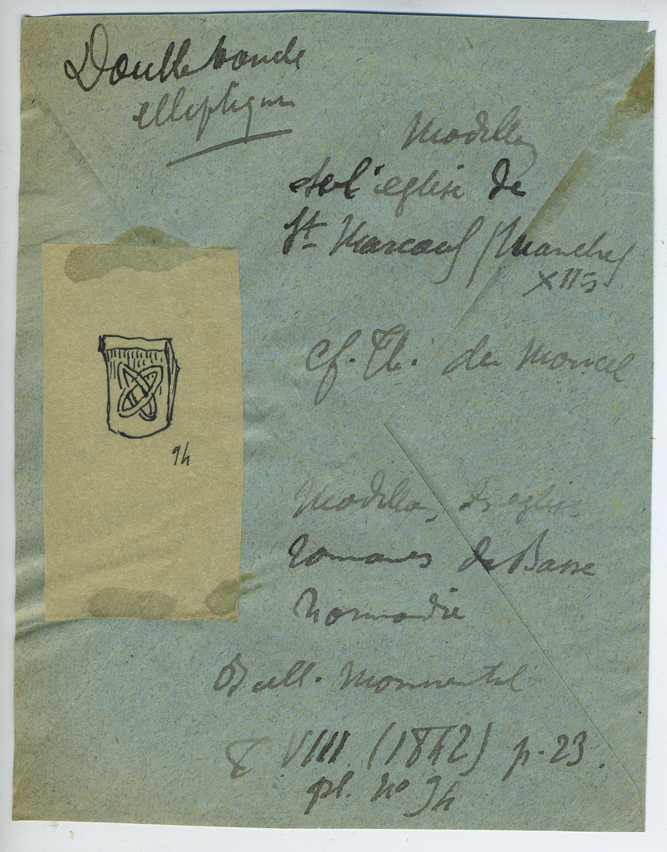 Double boucle
elliptique
Modillon
de l'eglise de
St Marcouf (Manche)
XIIs
cf. Th. du Moncel
94
Modillons des eglises
romanes de Basse
Normandie
Bull. Monumental
VIII (1842) p. 23.
pl. no 94